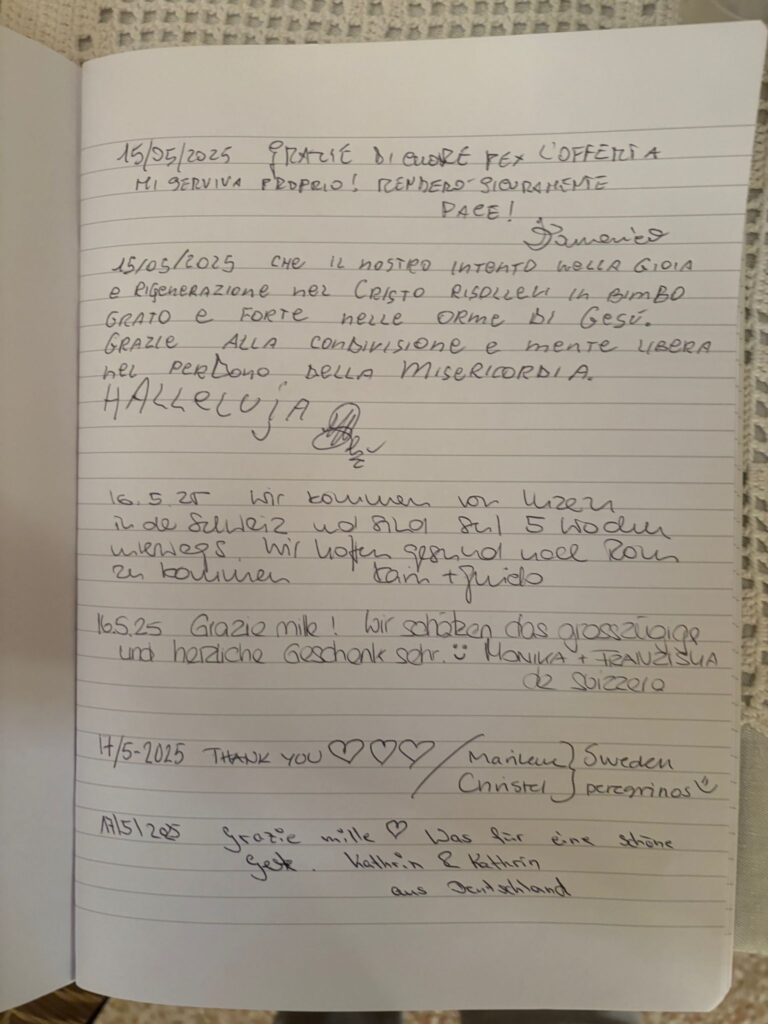 15/05/2025 GRAZIE DI CUORE PER L'OFFERTA
MI SERVIVA PROPRIO! RENDERO SICURAMENTE
PACE!
Domenico
15/05/2025 CHE IL NOSTRO INTENTO NELLA GIOIA
e RIGENERAZIONE nel CRISTO RISOLLEVI in BIMBO
GRATO e FORTE nelle ORME DI GESÙ.
GRAZIE ALLA CONDIVISIONE e mente LIBERA
nel PERDONO DELLA MISERICORDIA.
HALLELUJA
16.5.25 Wir kommen von Luzern
in de Schweiz und sind seit 5 Wochen
unterwegs. Wir hoffen gesund nach Rom
zu kommen + Guido
16.5.25 Grazie mille! Wir schätzen das grosszügige
und herzliche Geschenk sehr. MONIKA + FRANZISKA
de Svizzera
17/5-2025 THANK YOU ♡♡♡ / Sweden
Christel peregrinos
17/5/2025 Grazie mille ♡ Was für eine schöne
Geste. Kathrin & Kathrin
aus Deutschland